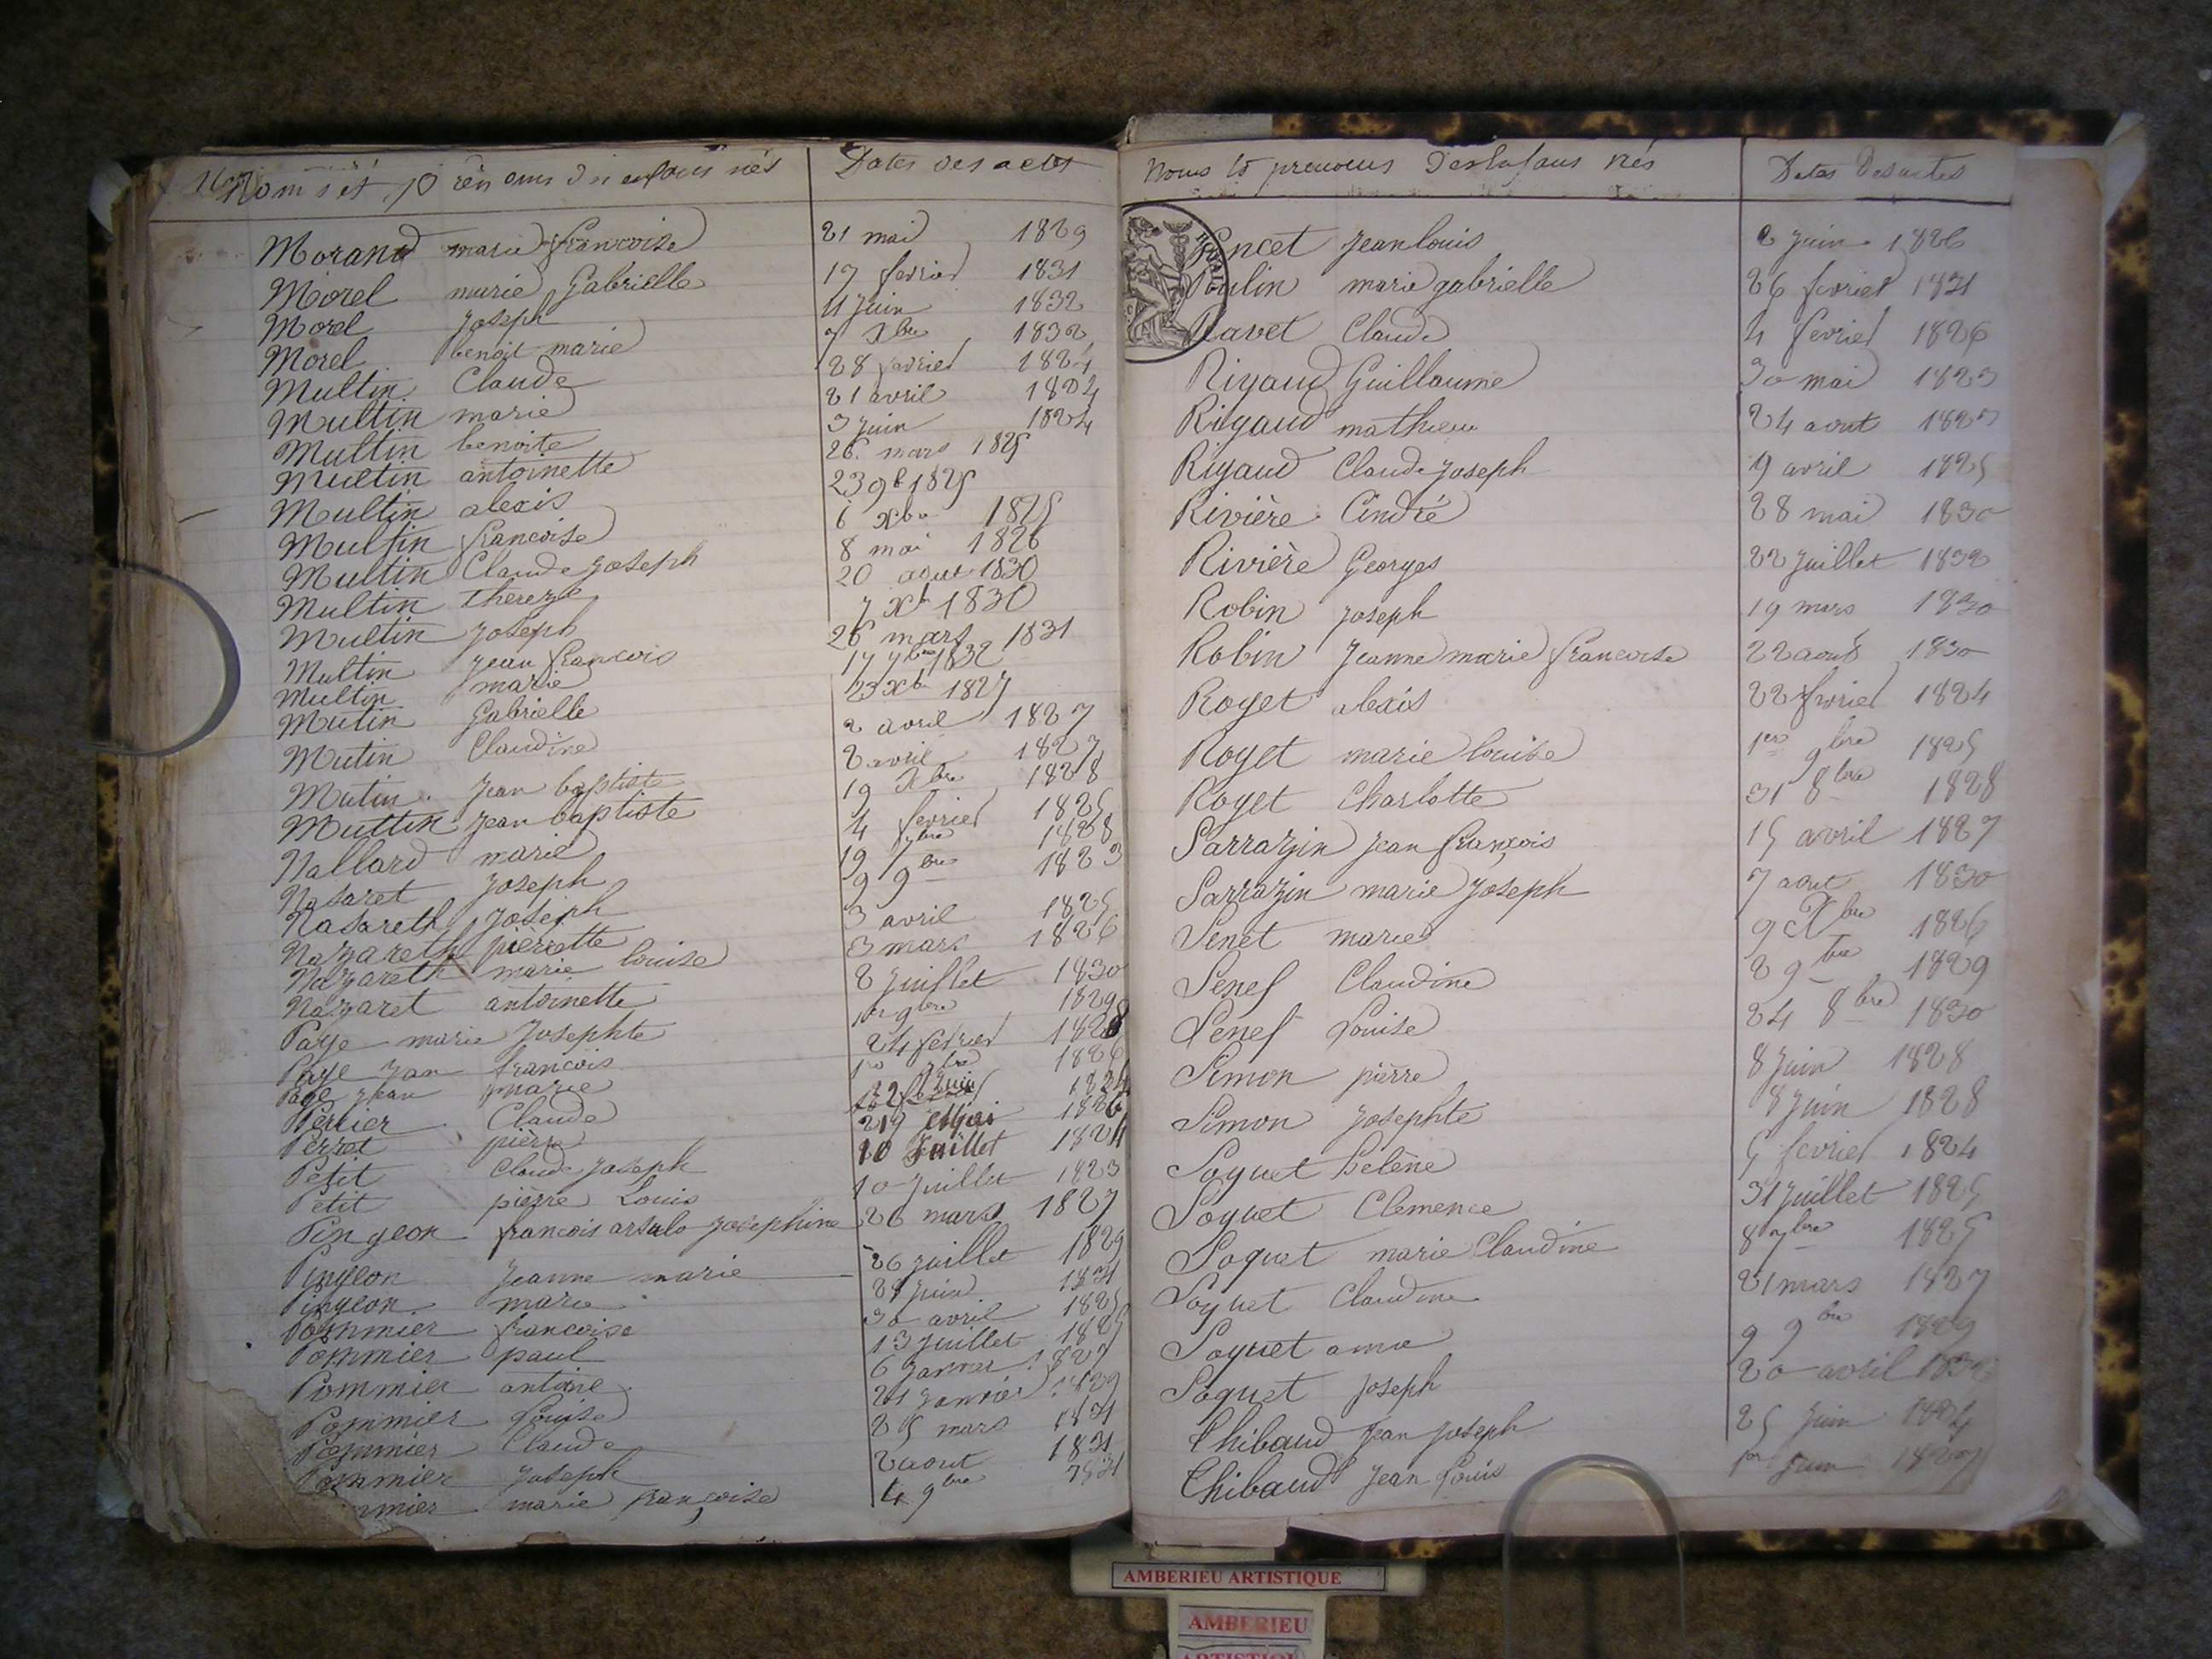 Noms et prénoms des enfans nés Dates des actes
Morand marie francoise 21 mai 1829
Morel marie Gabrielle 17 fevrier 1831
Morel Joseph 4 Juin 1832
Morel benoit marie 7 Xbre 1832
Multin Claude 28 fevrier 1824
Multin marie 21 avril 1824
Multin benoite 3 juin 1824
Multin antoinette 26 mars 1825
Multin alexis 23 9b 1825
Multin francoise 6 Xbre 1825
Multin Claude Joseph 8 mai 1826
Multin thereze 20 aout 1830
Multin Joseph 7 Xb 1830
Multin Jean francois 26 mars 1831
Multin marie 17 7bre 1832
Mutin Gabrielle 23 Xbre 1827
Mutin Claudine 2 avril 1827
Mutin Jean baptiste 2 avril 1827
Muttin Jean baptiste 19 Xbre 1828
Nallard marie 4 fevrier 1825
Nasaret Joseph 19 7bre 1828
Nasareth Joseph 9 9bre 1823
Nazareth pièrrette 3 avril 1825
Nazareth marie louise 3 mars 1826
Nazaret antoinette 8 Juillet 1830
Page marie Josephte 9bre 1829
Page Jean francois 24 février 1828
Page Jean marie 1826
Perrier Claude Juin 1824
Perret pierre Mai 1826
Petit Claude Joseph 10 Juillet 1824
Petit pièrre Louis 10 Juillet 1823
Pingeon francois Josephine 26 mars 1827
Pingeon Jeanne marie 26 juillet 1829
Pingeon marie Juin 1831
Pommier francoise 30 avril 1825
Pommier paul 13 Juillet 1825
Pommier antoine 6 Janvier 1827
Pommier Louise 21 Janvier 1829
Pommier Claude 25 mars 1831
Pommier Joseph 2 aout 1831
mmier marie françoise 4 9bre 1831
Noms et prenoms des Enfans nés Dates Des actes
oncet Jean louis 2 juin 1826
Poulin marie gabrielle 26 fevrier 1831
Ravet Claude 4 fevrier 1826
Rigaud Guillaume 30 mai 1823
Rigaud mathieu 24 aout
Rigaud Claude Joseph 9 avril 1825
Rivière 28 mai 1830
Rivière Georges 22 Juillet 1832
Robin Joseph 19 mars 1830
Robin Jeanne marie francoise 22 aout 1830
Royet alexis 22 fevrier 1824
Royet marie louise 1er 9bre 1825
Royet Charlotte 31 8bre 1828
Sarrazin Jean françois 15 avril 1827
Sarrazin marie Joseph 7 aout 1830
Senet marie 9 Xbre 1826
Senef Claudine 2 9bre 1829
Senef Louise 24 8bre 1830
Simon pièrre 8 Juin 1828
Simon Josephte 8 Juin 1828
Soquet helène 5 fevrier 1824
Soquet Clemence 31 Juillet 1825
Soquet marie Claudine 8 7bre 1825
Soquet Claudine 21 mars 1827
Soquet 9 9bre 1829
Soquet Joseph 20 avril
Thibaud Jean Joseph 25 Juin 1824
Thibaud Jean Louis 1er Juin 1827
AMBERIEU ARTISTIQUE
AMBERIEU
ARTISTIQUE